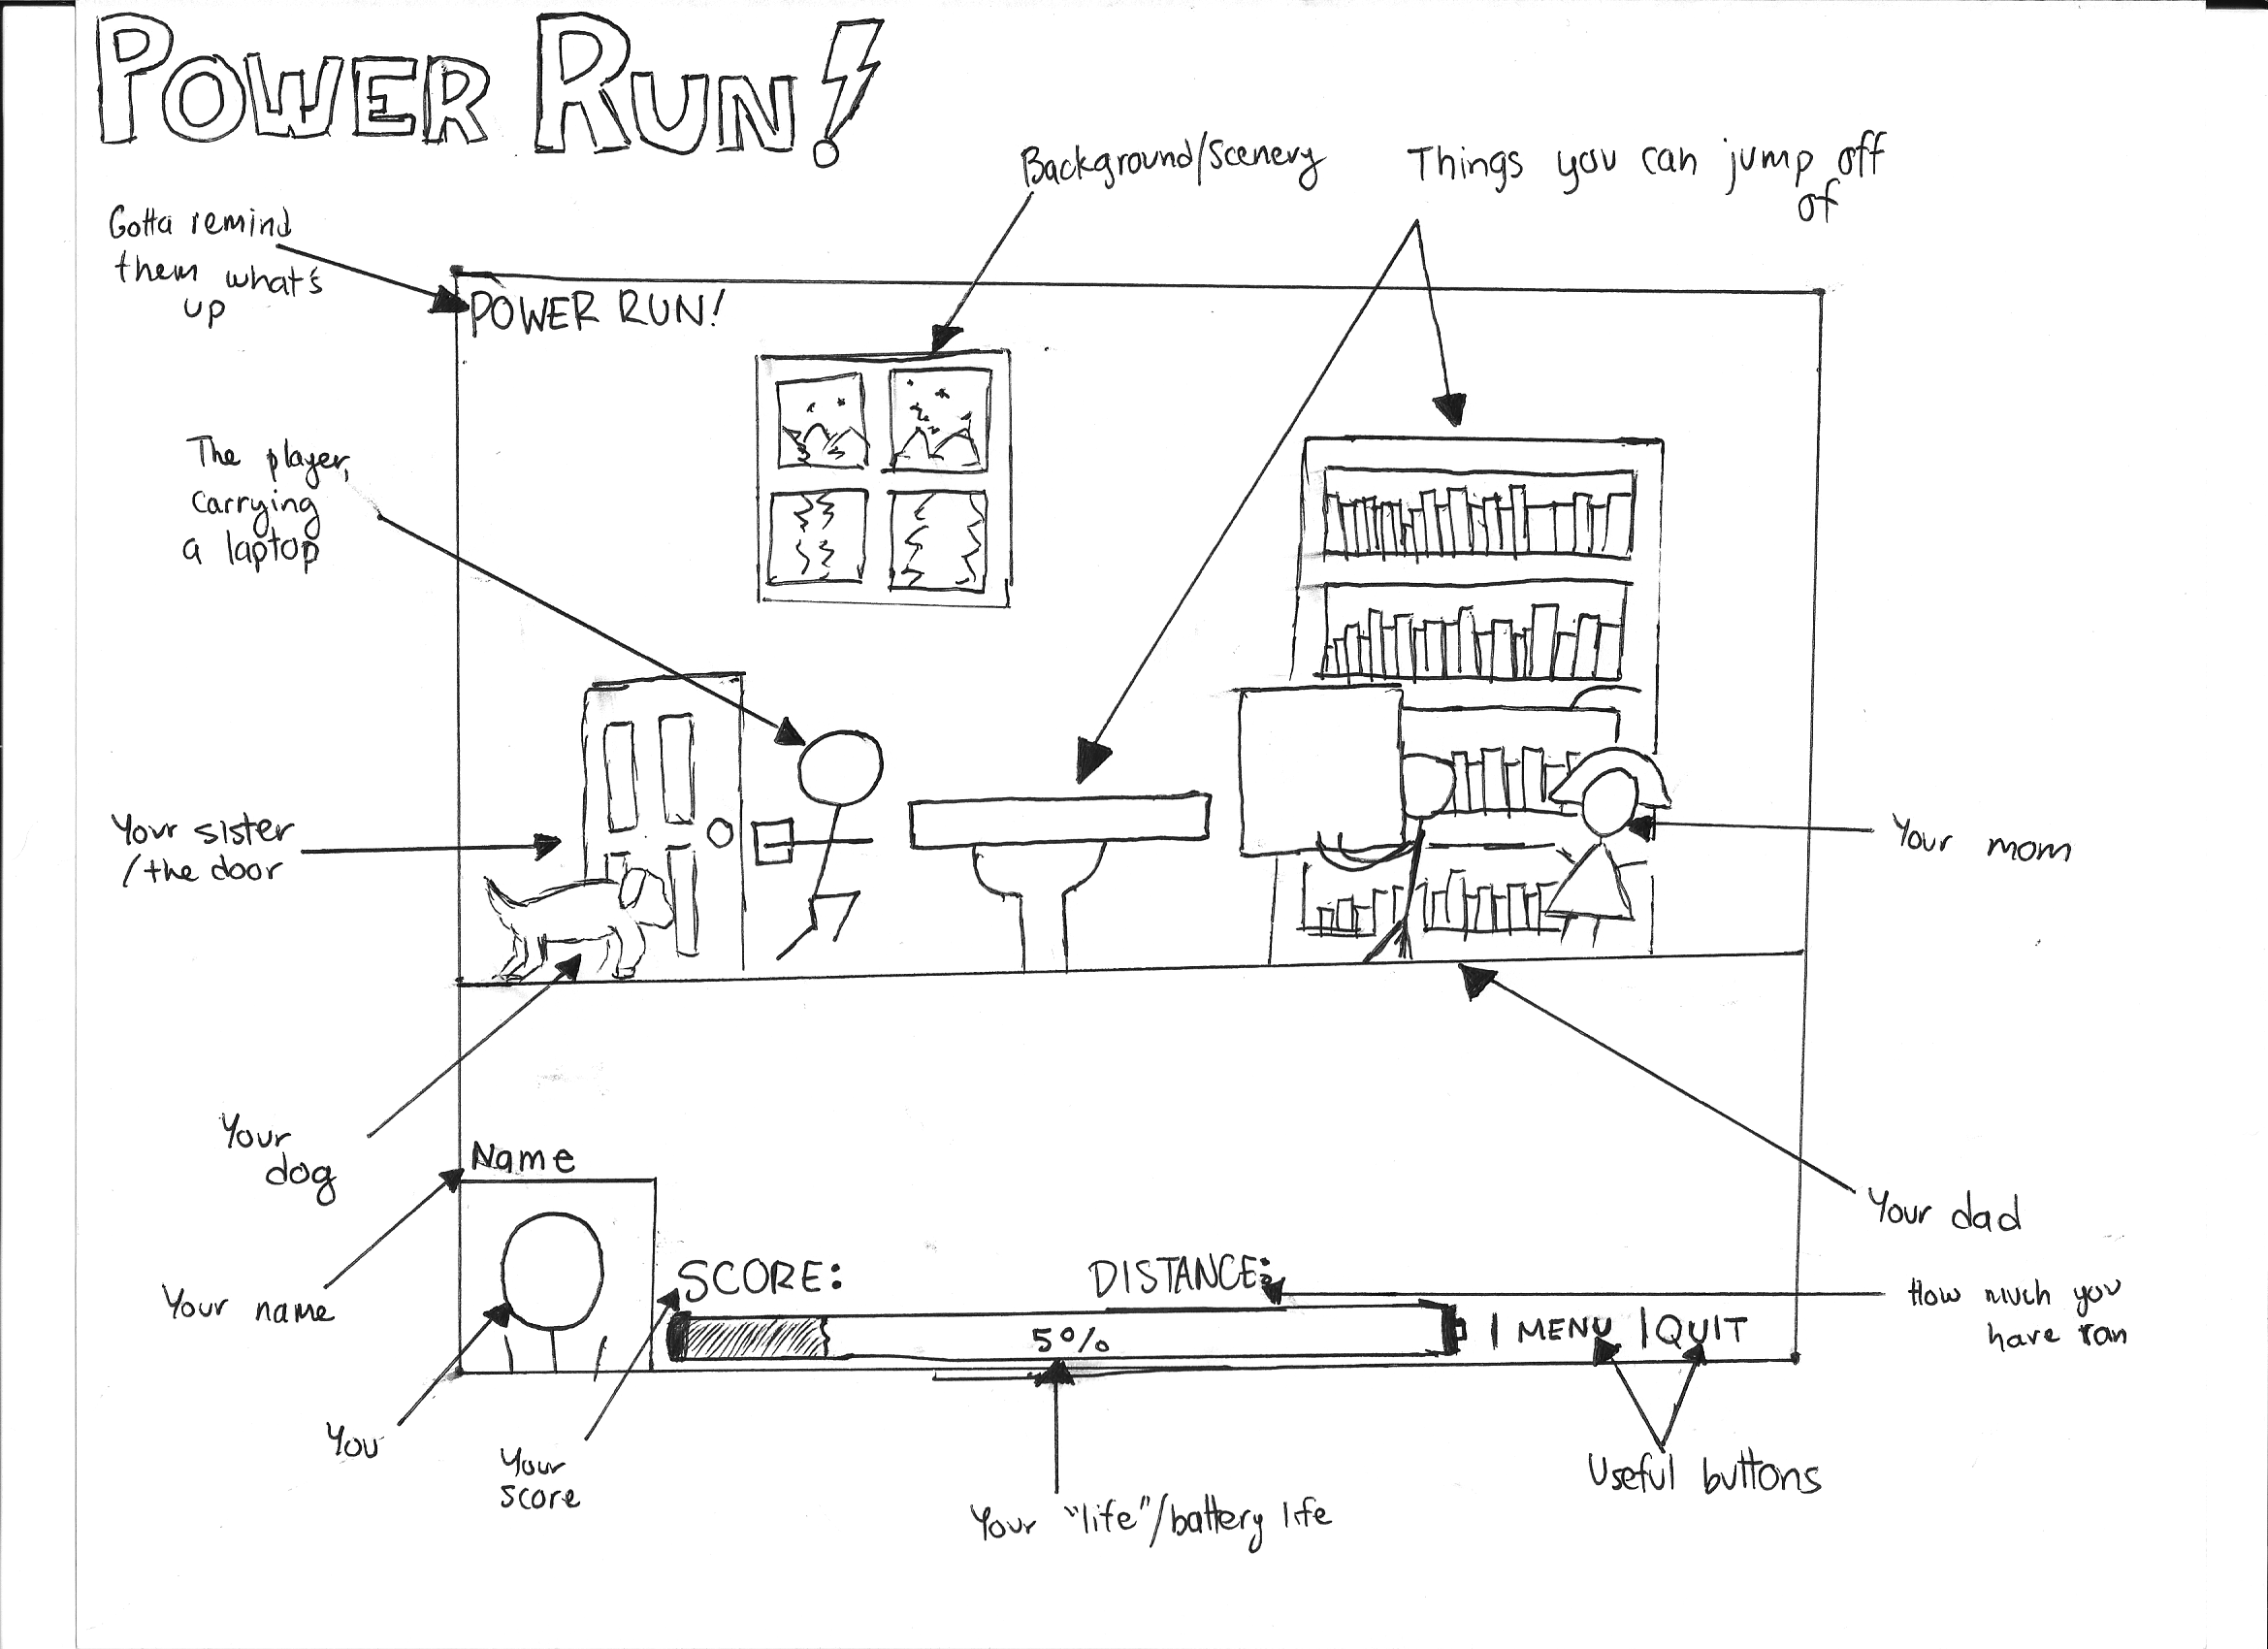 POWER RUN!
Background/Scenery
Things you can jump off
of
Gotta remind
them what's
up
POWER RUN!
The player,
carrying
a laptop
Your sister
/the door
Your mom
Your
dog
Name
Your dad
Your name
SCORE:
DISTANCE:
How much you
have ran
5%
| MENU | QUIT
You
Your
score
Your "life"/battery life
Useful buttons